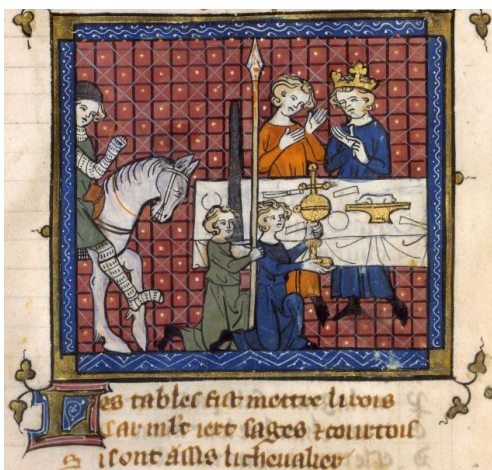 Les tables fist mettre li rois
Car mlt iert sages ⁊ courtois
S i sont assis li cheualier